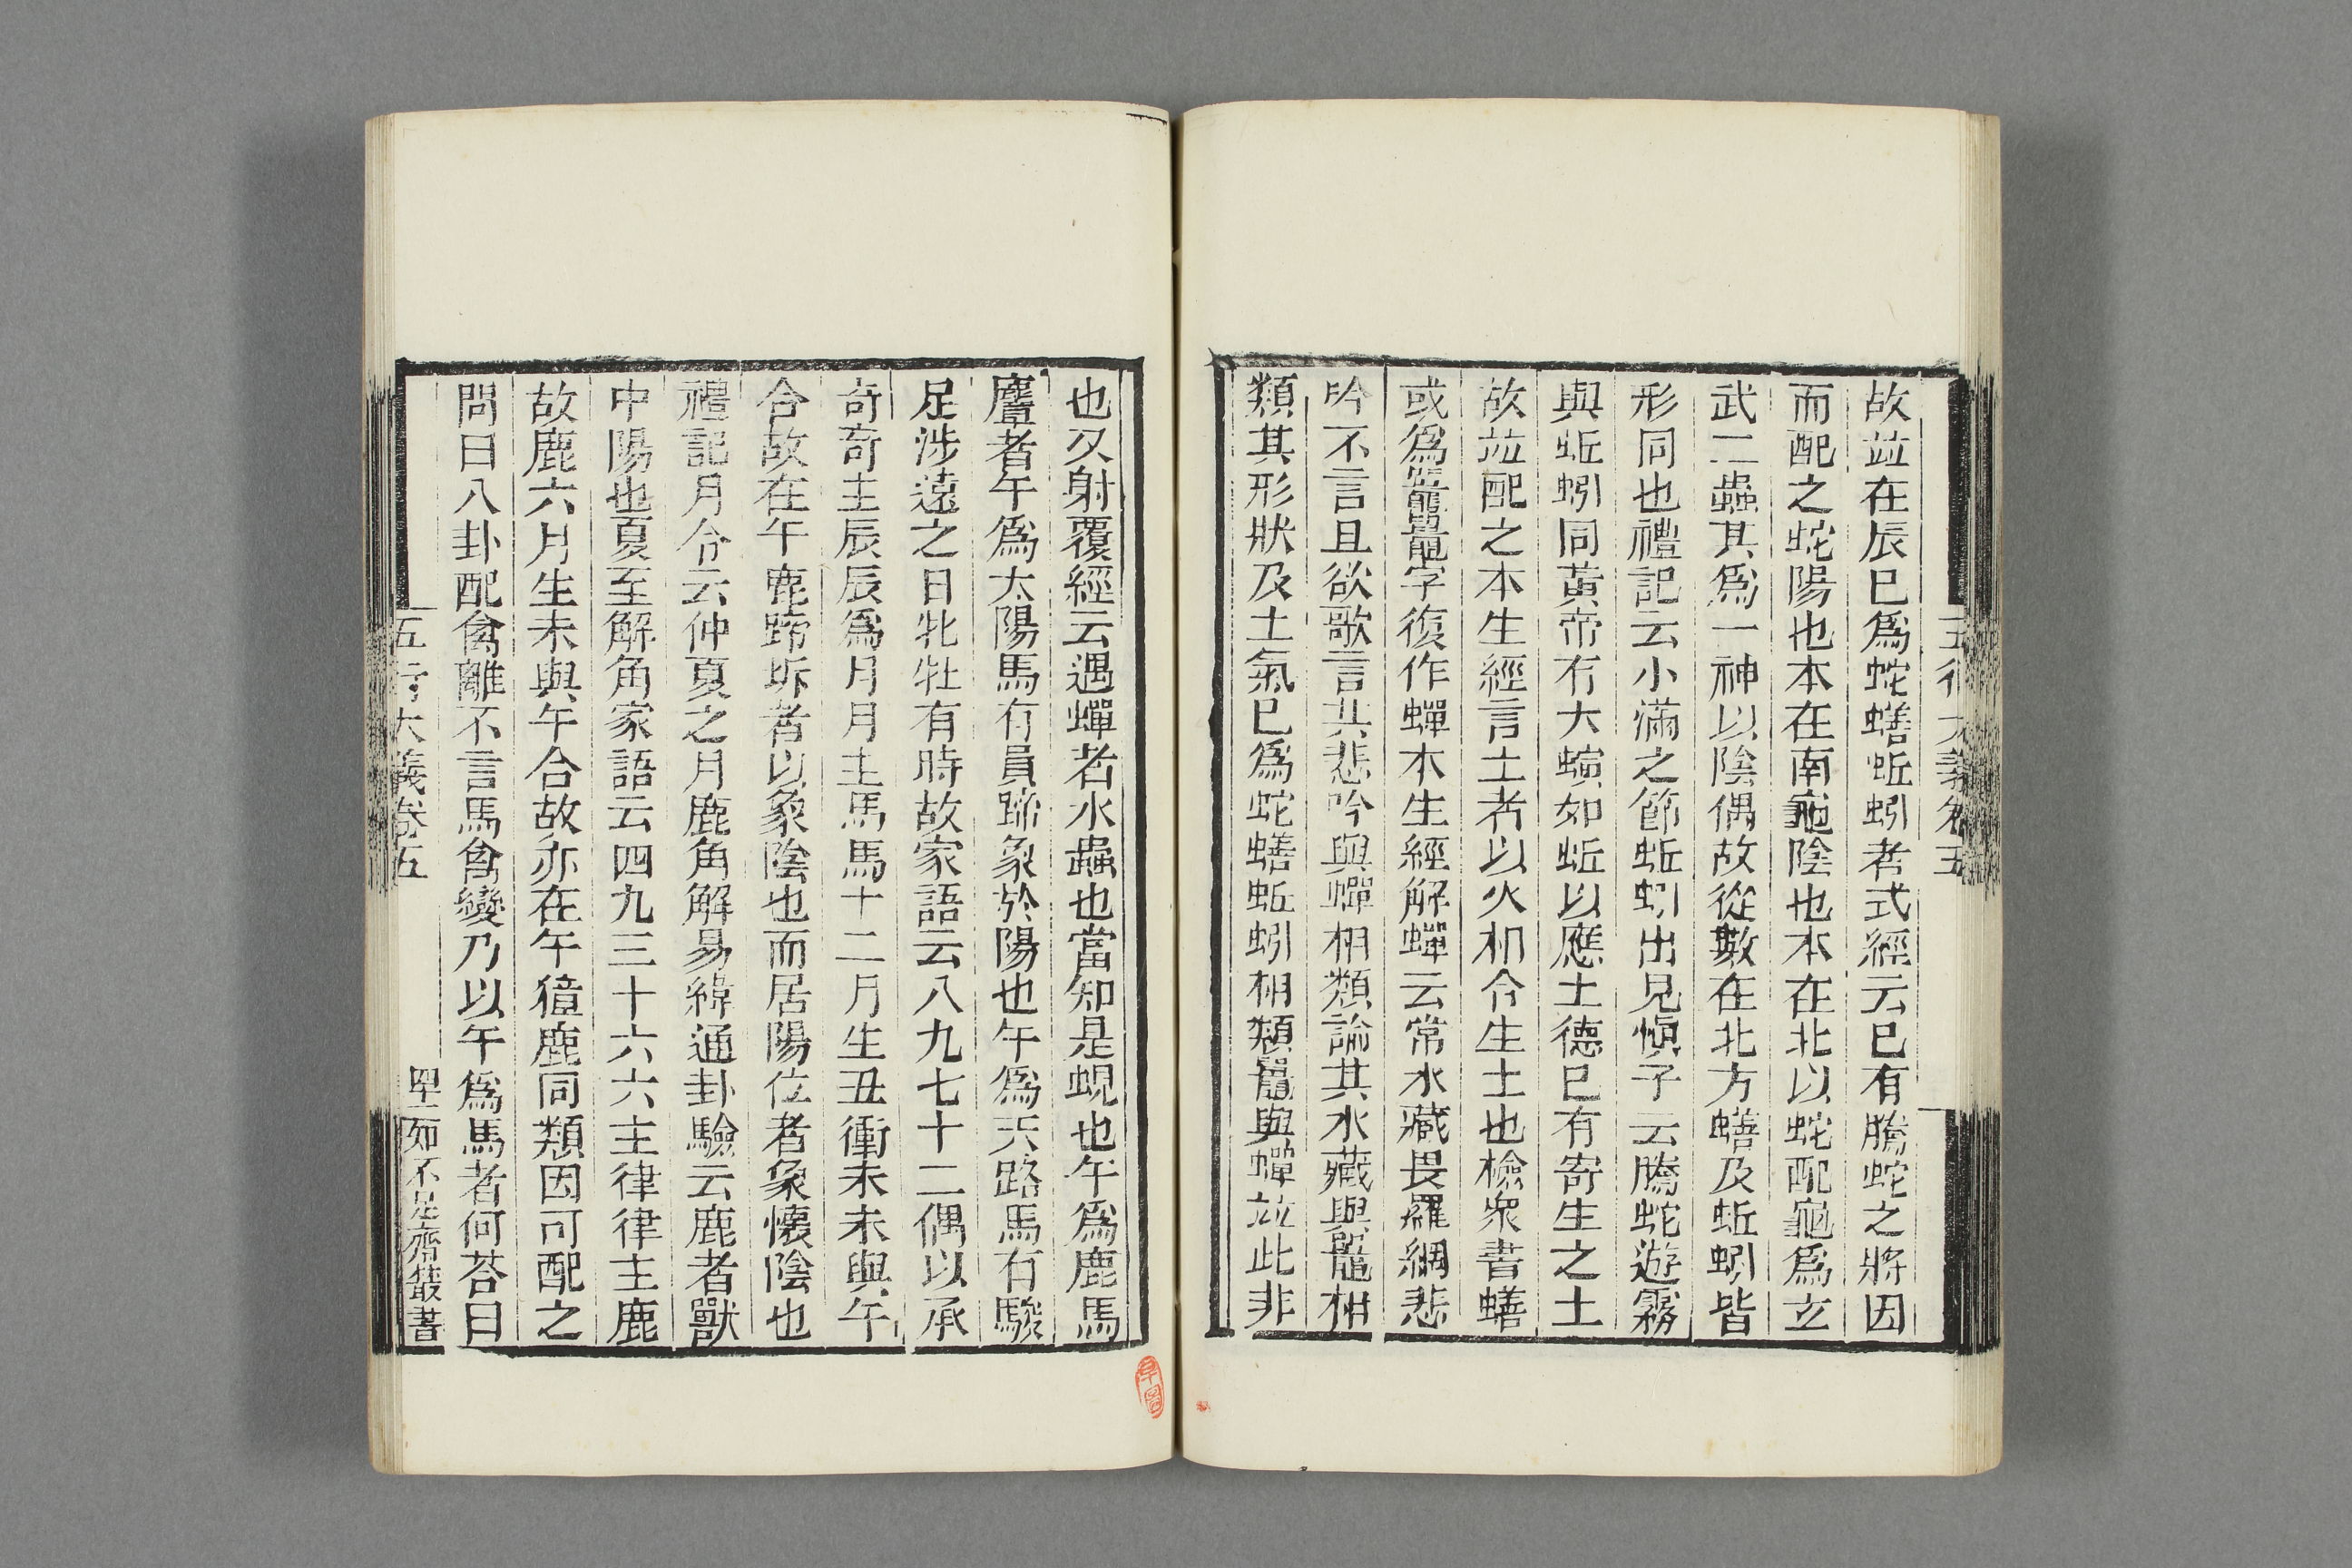 五行大義卷五
故竝在辰巳爲蛇蟮蚯蚓者式經云巳有騰蛇之將因
而配之蛇陽也本在南龜陰也本在北以蛇配龜爲玄
武二蟲其爲一神以陰偶故從數在北方蟮及蚯蚓皆
形同也禮記云小滿之節蚯蚓出見愼子云騰蛇遊霧
與蚯蚓同黃帝有大螾如蚯以應土德巳有寄生之土
故竝配之本生經言土者以火相令生土也檢衆書蟮
或爲鼉字復作蟬本生經解蟬云常水藏畏羅網悲
吟不言且欲歌言其悲吟與蟬相類論其水藏與鼉相
類其形狀及土氣巳爲蛇蟮蚯蚓相類鼉與蟬竝此非
也又射覆經云遇蟬者水蟲也當知是蜆也午爲鹿馬
麞者午爲太陽馬有員蹄象於陽也午爲天路馬有駿
足涉遠之日牝牡有時故家語云八九七十二偶以承
奇奇主辰辰爲月月主馬馬十二月生丑衝未未與午
合故在午鹿蹄坼者以象陰也而居陽位者象懷陰也
禮記月令云仲夏之月鹿角解易緯通卦驗云鹿者獸
中陽也夏至解角家語云四九三十六六主律律主鹿
故鹿六月生未與午合故亦在午獐鹿同類因可配之
問曰八卦配禽離不言馬禽變乃以午爲馬者何荅曰
五行大義卷五 知不足齋叢書